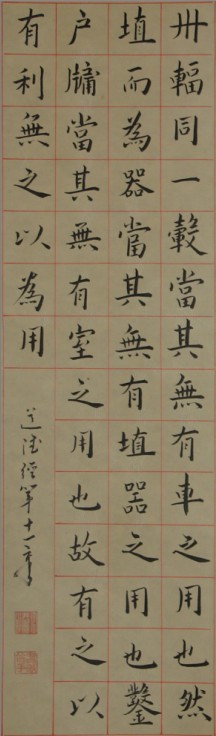 卅輻同一轂當其無有車之用也然
埴而為器當其無有埴器之用也鑿
户牖當其無有室之用也故有之以
有利無之以為用
道德經第十一章